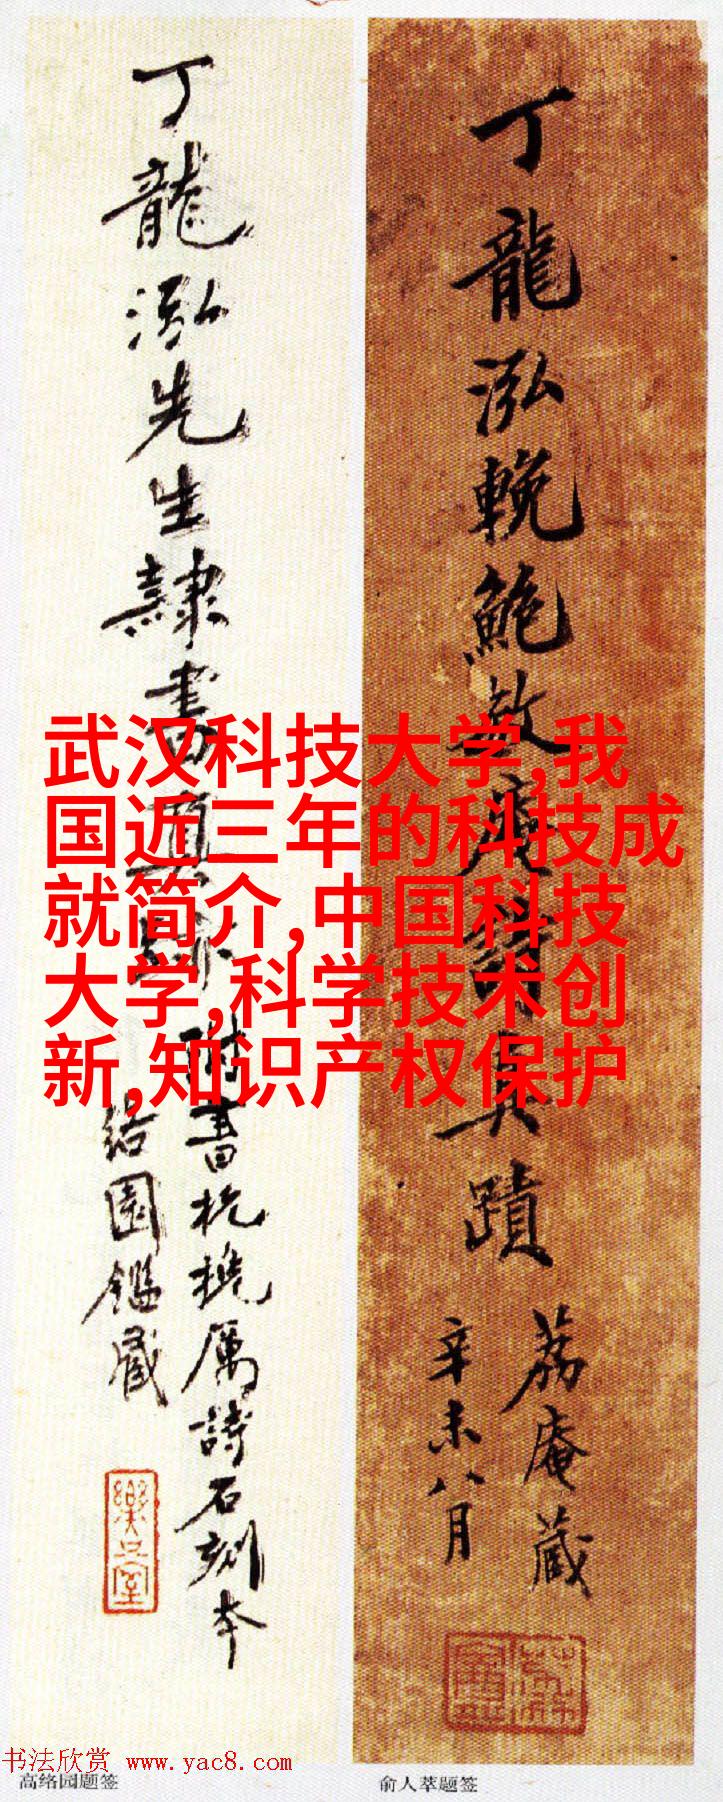 丁龍泓先生隸書真跡
附書杭堇浦厲詩石刻本
络園鑑藏
樂只室
丁龍泓輓鮑敏庵詩真蹟
荔庵藏
辛未八月
武汉科技大学,我
国近三年的科技成
就简介,中国科技
大学,科学技术创
新,知识产权保护
书法欣赏 www.yac8.com
高络园题签
俞人萃题签